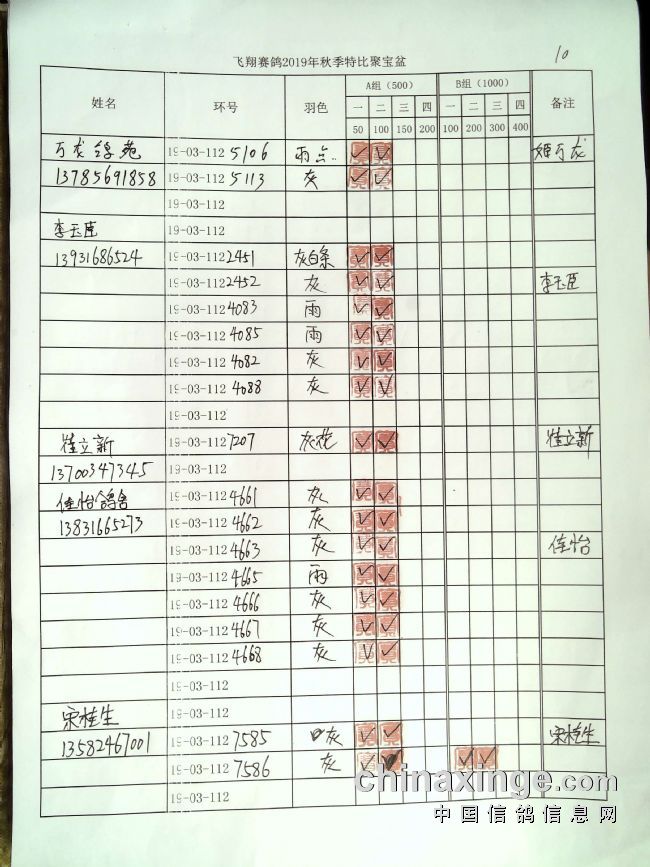 飞翔赛鸽2019年秋季特比聚宝盆
10
姓名 环号 羽色 A组（500） B组（1000） 备注
一 二 三 四 一 二 三 四
50 100 150 200 100 200 300 400
万龙鸽苑 19-03-112 5106 雨点 ✓ ✓ 姬万龙
13785691858 19-03-112 5113 灰 ✓ ✓
19-03-112
李玉臣 19-03-112
13931686524 19-03-112 2451 灰白条 ✓ ✓
19-03-112 2452 灰 ✓ ✓ 李玉臣
19-03-112 4083 雨 ✓ ✓
19-03-112 4085 雨 ✓ ✓
19-03-112 4082 灰 ✓ ✓
19-03-112 4088 灰 ✓ ✓
19-03-112
崔立新 19-03-112 7207 灰花 ✓ ✓ 崔立新
13700347345 19-03-112
佳怡鸽舍 19-03-112 4661 灰 ✓ ✓
13831665273 19-03-112 4662 灰 ✓ ✓
19-03-112 4663 灰 ✓ ✓ 佳怡
19-03-112 4665 雨 ✓ ✓
19-03-112 4666 灰 ✓ ✓
19-03-112 4667 灰 ✓ ✓
19-03-112 4668 灰 ✓ ✓
19-03-112
宋桂生 19-03-112
13582467001 19-03-112 7585 灰 ✓ ✓ 宋桂生
19-03-112 7586 灰 ✓ ✓ ✓
19-03-112
chinaxinge.com
中国信鸽信息网